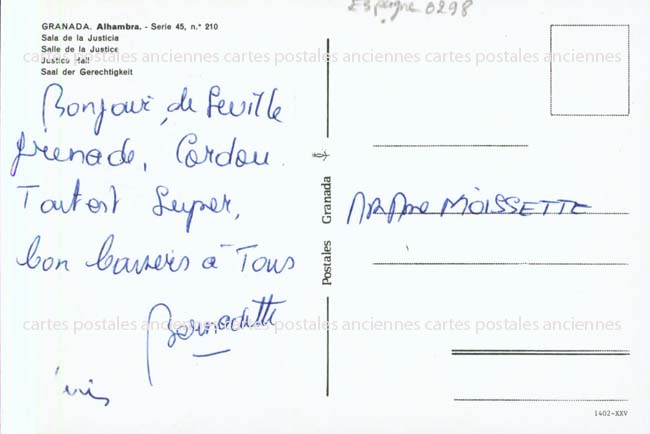 Espagne 0298
GRANADA. Alhambra. - Serie 45, n.° 210
Sala de la Justicia
Salle de la Justice
Justice Hall
Saal der Gerechtigkeit
cartes postales anciennes cartes postales anciennes cartes postales anciennes
Bonjour, de Seville
Grenade, Cordou.
Tout est Super,
bon baisers à Tous
Bernadette
Postales Granada
MOISSETTE
cartes postales anciennes cartes postales anciennes cartes postales anciennes
1402-XXV